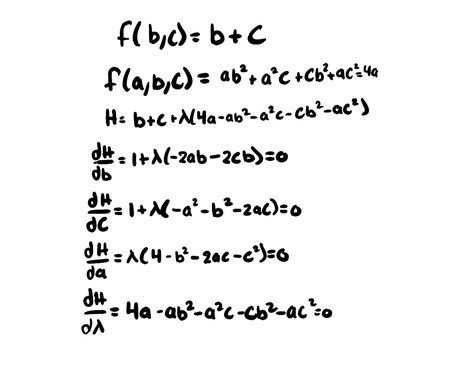 f(b,c) = b + c
f(a,b,c) = ab² + a²c + cb² + ac² = 4a
H = b + c + λ(4a - ab² - a²c - cb² - ac²)
dH/db = 1 + λ(-2ab - 2cb) = 0
dH/dc = 1 + λ(-a² - b² - 2ac) = 0
dH/da = λ(4 - b² - 2ac - c²) = 0
dH/dλ = 4a - ab² - a²c - cb² - ac² = 0